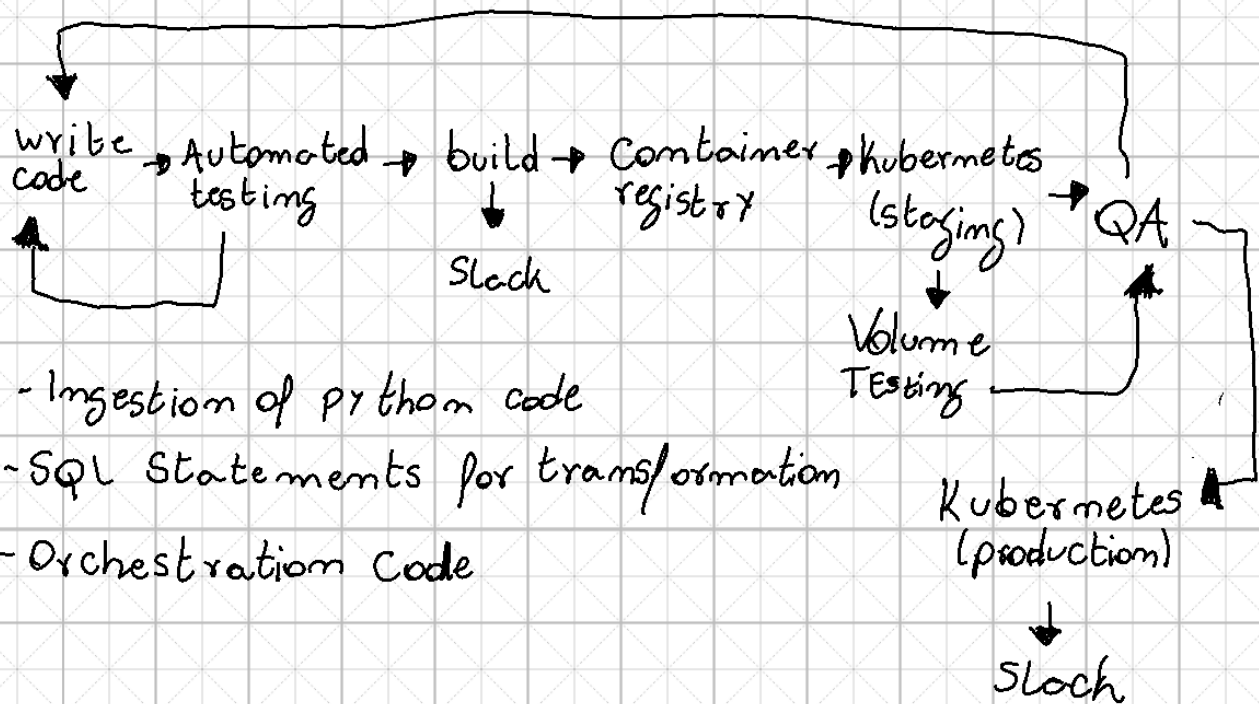 write
code
Automated
testing
build
Slack
Container
registry
Kubernetes
(staging)
QA
Volume
TEsting
- Ingestion of python code
- SQL Statements for transformation
- Orchestration Code
Kubernetes
(production)
Slack